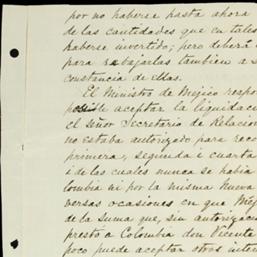 por no haberse hasta ahora
de las cantidades que en tales
haberse invertido; pero deberá
para rebajarlas tambien a su
constancia de ellas.
El Ministro de Mejico respo
posible aceptar la liquidaci
el señor Secretario de Relacion
no estaba autorizado para reco
primera, segunda i cuarta
i de las cuales nunca se habia
lombia ni por la misma Nueva
versas ocasiones en que Mej
de la suma que, sin autorizac
presto a Colombia don Vicente
poco puede aceptar otros inte